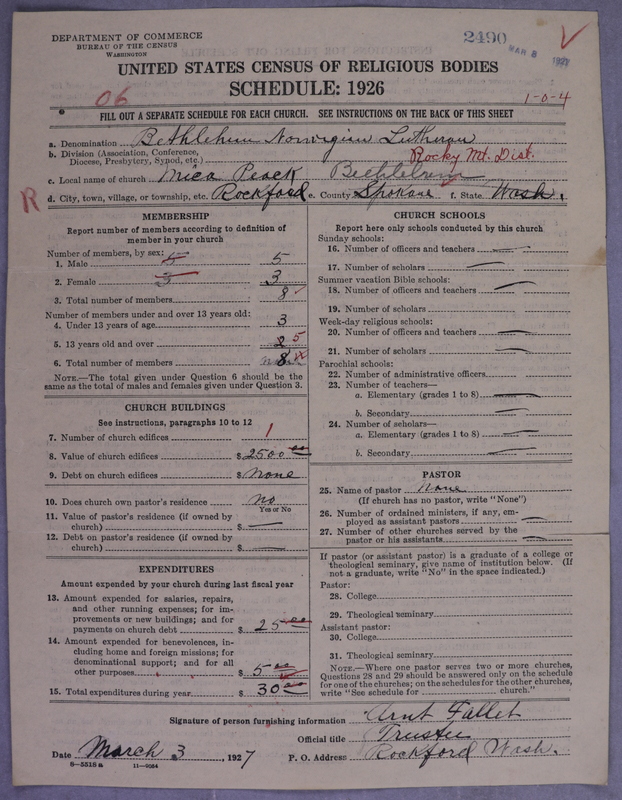 DEPARTMENT OF COMMERCE
BUREAU OF THE CENSUS
WASHINGTON
2490
MAR 8 1927
UNITED STATES CENSUS OF RELIGIOUS BODIES
SCHEDULE: 1926
06
1-0-4
FILL OUT A SEPARATE SCHEDULE FOR EACH CHURCH. SEE INSTRUCTIONS ON THE BACK OF THIS SHEET
a. Denomination Bethlehem Norwegian Lutheran
b. Division (Association, Conference, Diocese, Presbytery, Synod, etc.) Rocky Mt. Dist.
c. Local name of church Mica Peack Bethlehem
R d. City, town, village, or township, etc. Rockford e. County Spokane f. State Wash.
MEMBERSHIP
Report number of members according to definition of
member in your church
Number of members, by sex:
1. Male 5 5
2. Female 3 3
3. Total number of members 8
Number of members under and over 13 years old:
4. Under 13 years of age 3
5. 13 years old and over 2 5
6. Total number of members 8
NOTE.—The total given under Question 6 should be the
same as the total of males and females given under Question 3.
CHURCH BUILDINGS
See instructions, paragraphs 10 to 12
7. Number of church edifices 1
8. Value of church edifices $2500 00
9. Debt on church edifices $None
10. Does church own pastor's residence No
Yes or No
11. Value of pastor's residence (if owned by
church) $—
12. Debt on pastor's residence (if owned by
church) $—
EXPENDITURES
Amount expended by your church during last fiscal year
13. Amount expended for salaries, repairs,
and other running expenses; for im-
provements or new buildings; and for
payments on church debt $ 25 00
14. Amount expended for benevolences, in-
cluding home and foreign missions; for
denominational support; and for all
other purposes $ 5 00
15. Total expenditures during year $ 30 00
CHURCH SCHOOLS
Report here only schools conducted by this church
Sunday schools:
16. Number of officers and teachers —
17. Number of scholars —
Summer vacation Bible schools:
18. Number of officers and teachers —
19. Number of scholars
Week-day religious schools:
20. Number of officers and teachers —
21. Number of scholars —
Parochial schools:
22. Number of administrative officers
23. Number of teachers—
a. Elementary (grades 1 to 8) —
b. Secondary —
24. Number of scholars—
a. Elementary (grades 1 to 8) —
b. Secondary —
PASTOR
25. Name of pastor None
(If church has no pastor, write "None")
26. Number of ordained ministers, if any, em-
ployed as assistant pastors —
27. Number of other churches served by the
pastor or his assistants —
If pastor (or assistant pastor) is a graduate of a college or
theological seminary, give name of institution below. (If
not a graduate, write "No" in the space indicated.)
Pastor:
28. College
29. Theological seminary
Assistant pastor:
30. College
31. Theological seminary
NOTE.—Where one pastor serves two or more churches,
Questions 28 and 29 should be answered only on the schedule
for one of the churches; on the schedules for the other churches,
write "See schedule for church."
Signature of person furnishing information Arnt Fallet
Official title Trustee
Date March 3, 1927 P. O. Address Rockford Wash.
8—5518a 11—9084